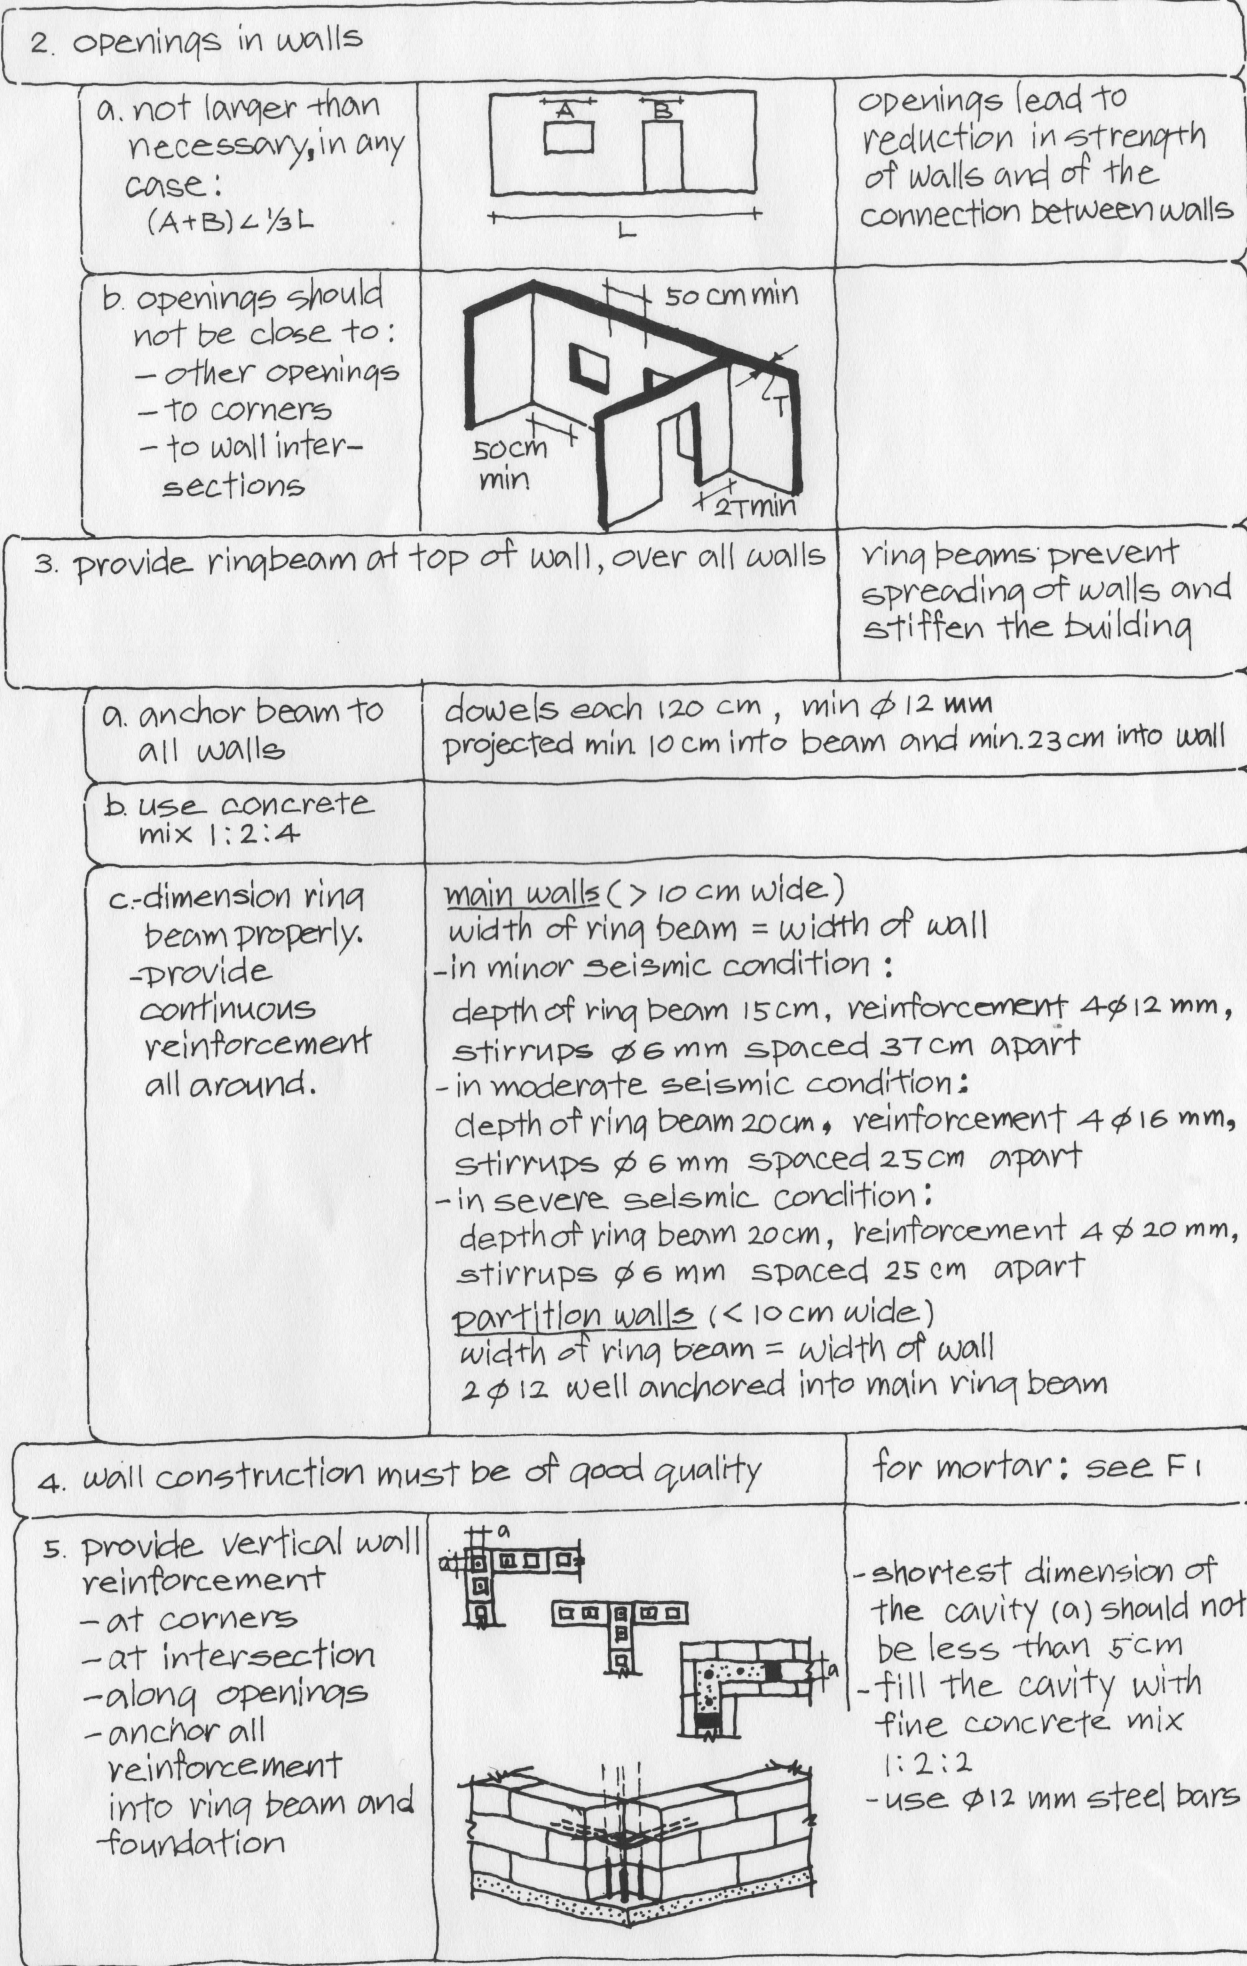 2. openings in walls
a. not larger than
necessary, in any
case:
(A+B) < 1/3 L
A
B
L
openings lead to
reduction in strength
of walls and of the
connection between walls
b. openings should
not be close to:
- other openings
- to corners
- to wall inter-
sections
50 cm min
T
50 cm
min
2T min
3. provide ringbeam at top of wall, over all walls
ring beams prevent
spreading of walls and
stiffen the building
a. anchor beam to
all walls
dowels each 120 cm, min ø 12 mm
projected min. 10 cm into beam and min. 23 cm into wall
b. use concrete
mix 1:2:4
c.-dimension ring
beam properly.
-provide
continuous
reinforcement
all around.
main walls (> 10 cm wide)
width of ring beam = width of wall
-in minor seismic condition:
depth of ring beam 15 cm, reinforcement 4ø12 mm,
stirrups ø6 mm spaced 37 cm apart
-in moderate seismic condition:
depth of ring beam 20 cm, reinforcement 4 ø 16 mm,
stirrups ø 6 mm spaced 25 cm apart
-in severe seismic condition:
depth of ring beam 20 cm, reinforcement 4 ø 20 mm,
stirrups ø 6 mm spaced 25 cm apart
partition walls (< 10 cm wide)
width of ring beam = width of wall
2 ø 12 well anchored into main ring beam
4. wall construction must be of good quality
for mortar: see F1
5. provide vertical wall
reinforcement
- at corners
- at intersection
- along openings
- anchor all
reinforcement
into ring beam and
foundation
a
a
a
- shortest dimension of
the cavity (a) should not
be less than 5 cm
- fill the cavity with
fine concrete mix
1:2:2
- use ø12 mm steel bars